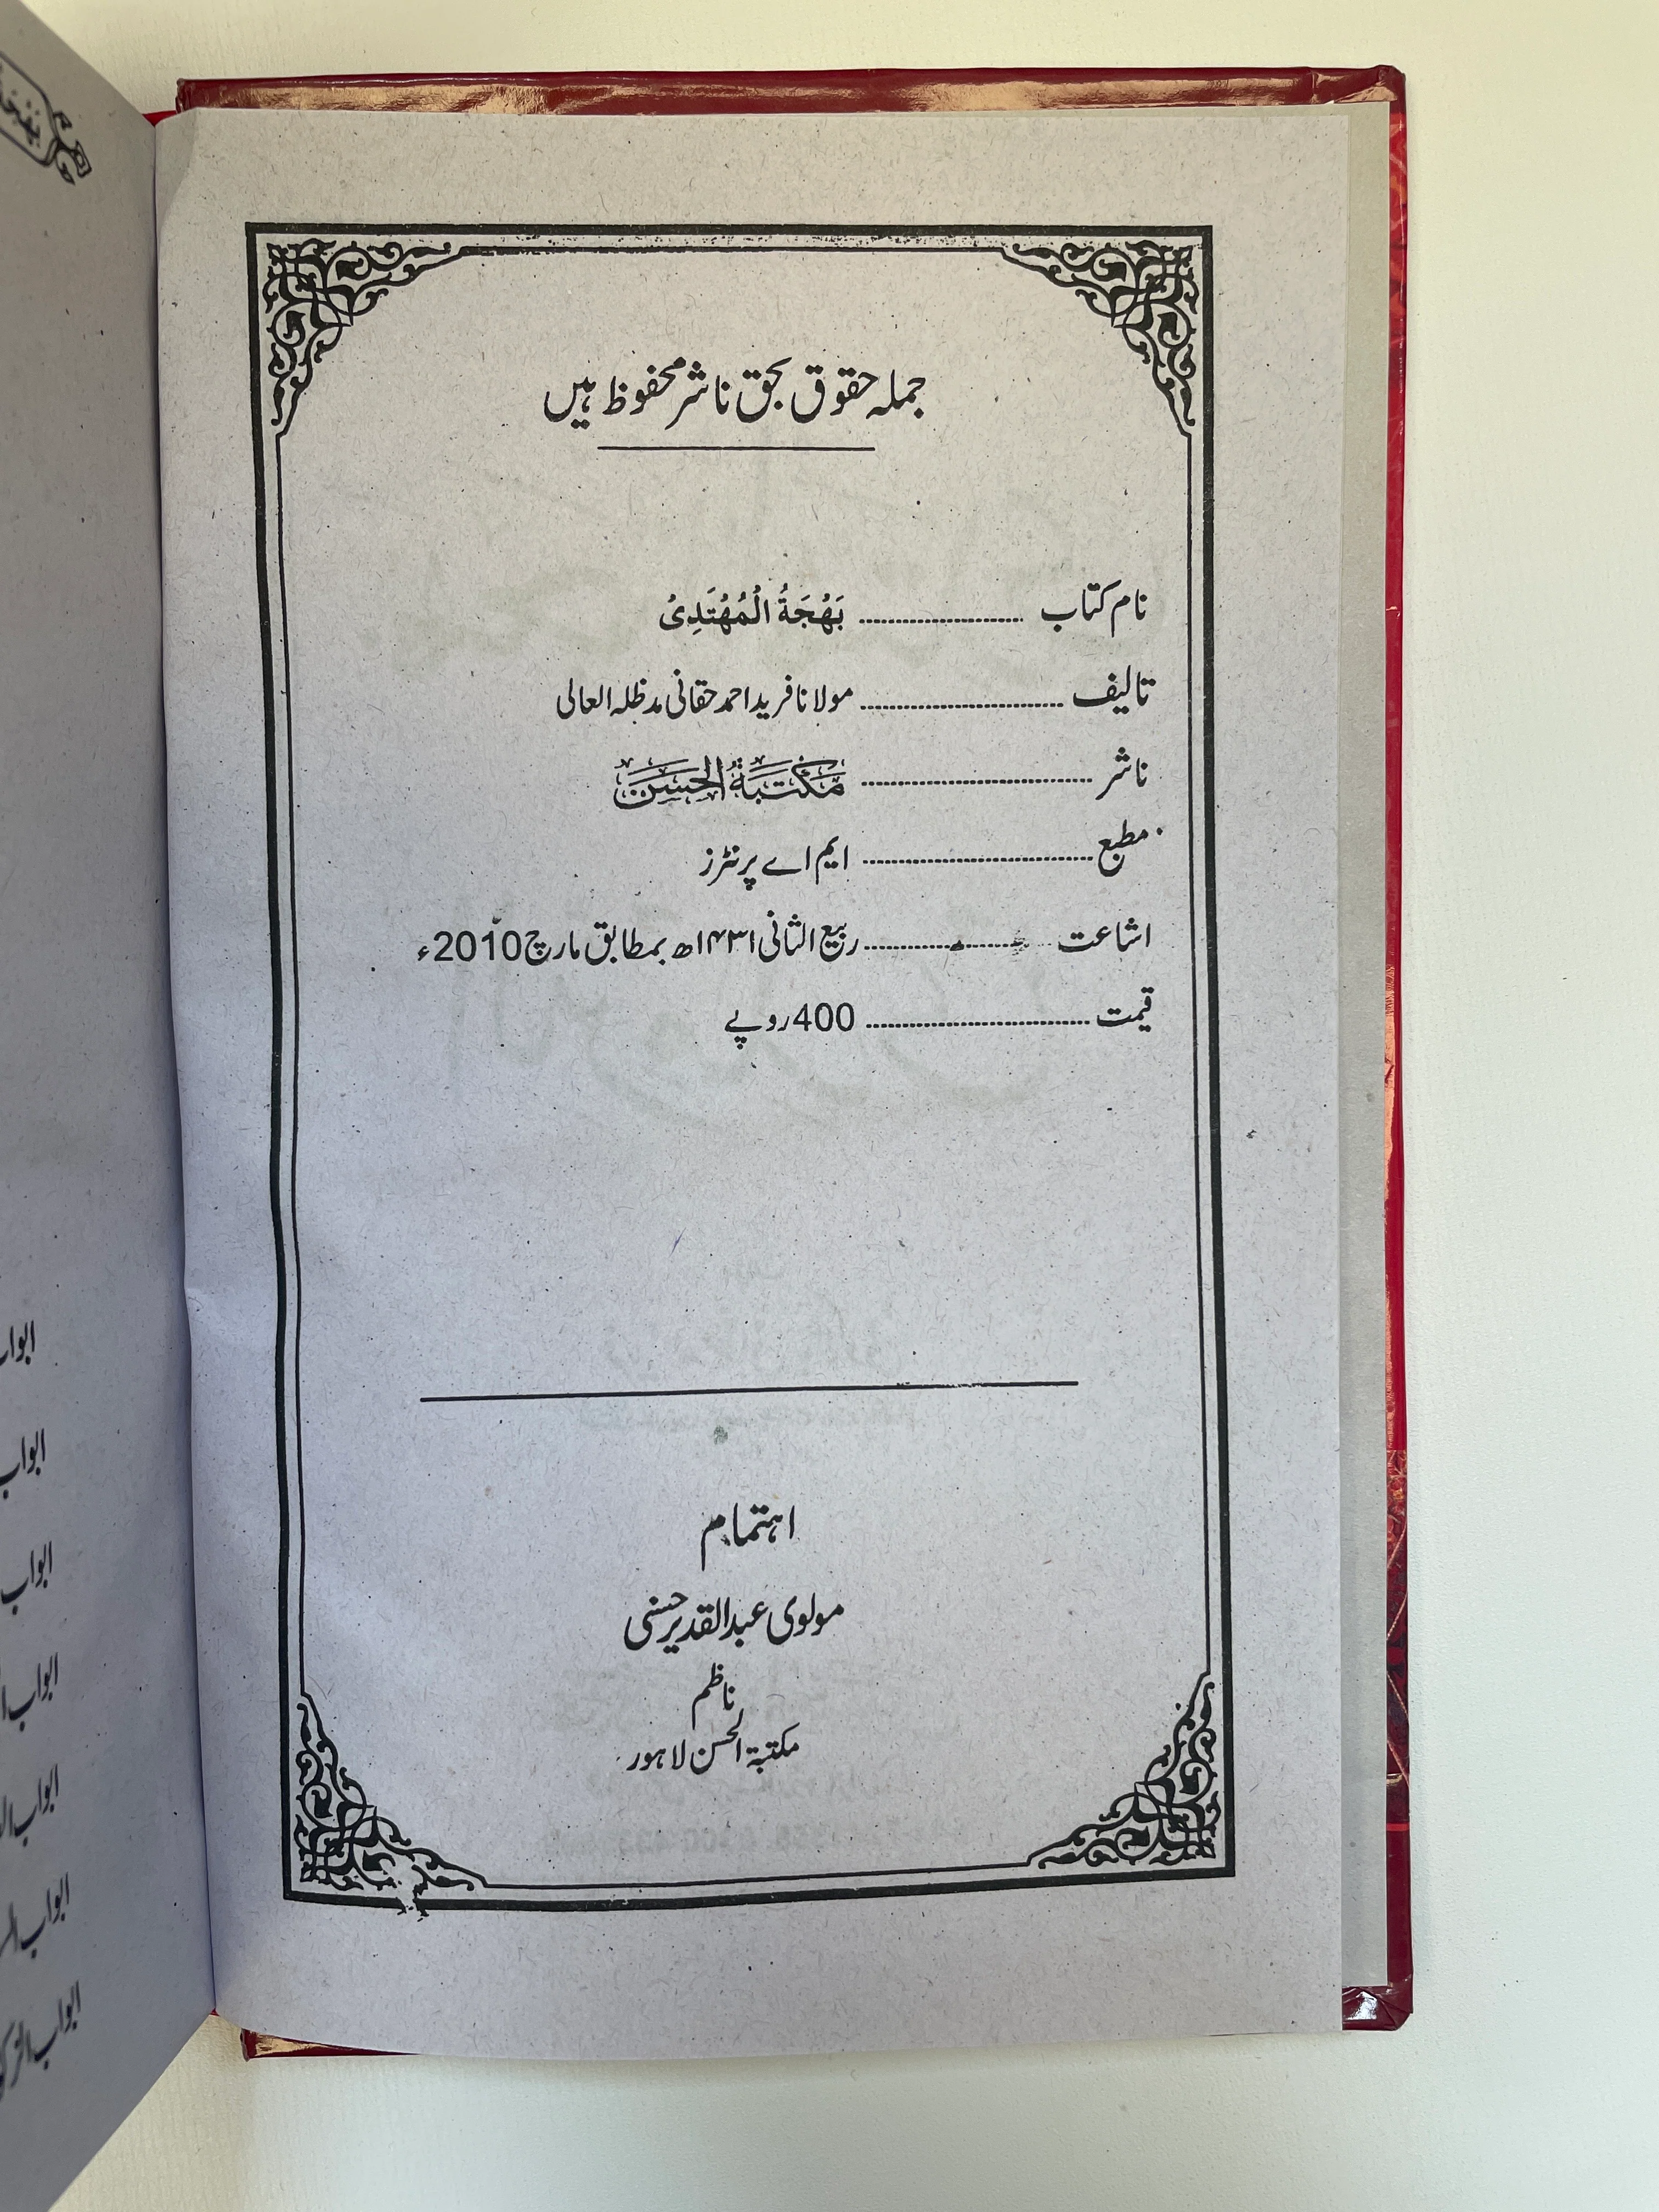 جملہ حقوق بحق ناشر محفوظ ہیں
نام کتاب ........................ بَهْجَةُ الْمُهْتَدِیْ
تالیف ........................ مولانا فرید احمد حقانی مدظلہ العالی
ناشر ........................ مَكْتَبَةُ الْحَسَنْ
مطبع ........................ ایم اے پرنٹرز
اشاعت ........................ ربیع الثانی ۱۴۳۱ھ بمطابق مارچ 2010ء
قیمت ........................ 400 روپے
اہتمام
مولوی عبدالقدیر حسنی
ناظم
مکتبۃ الحسن لاہور
ابواب
ابواب
ابواب
ابواب